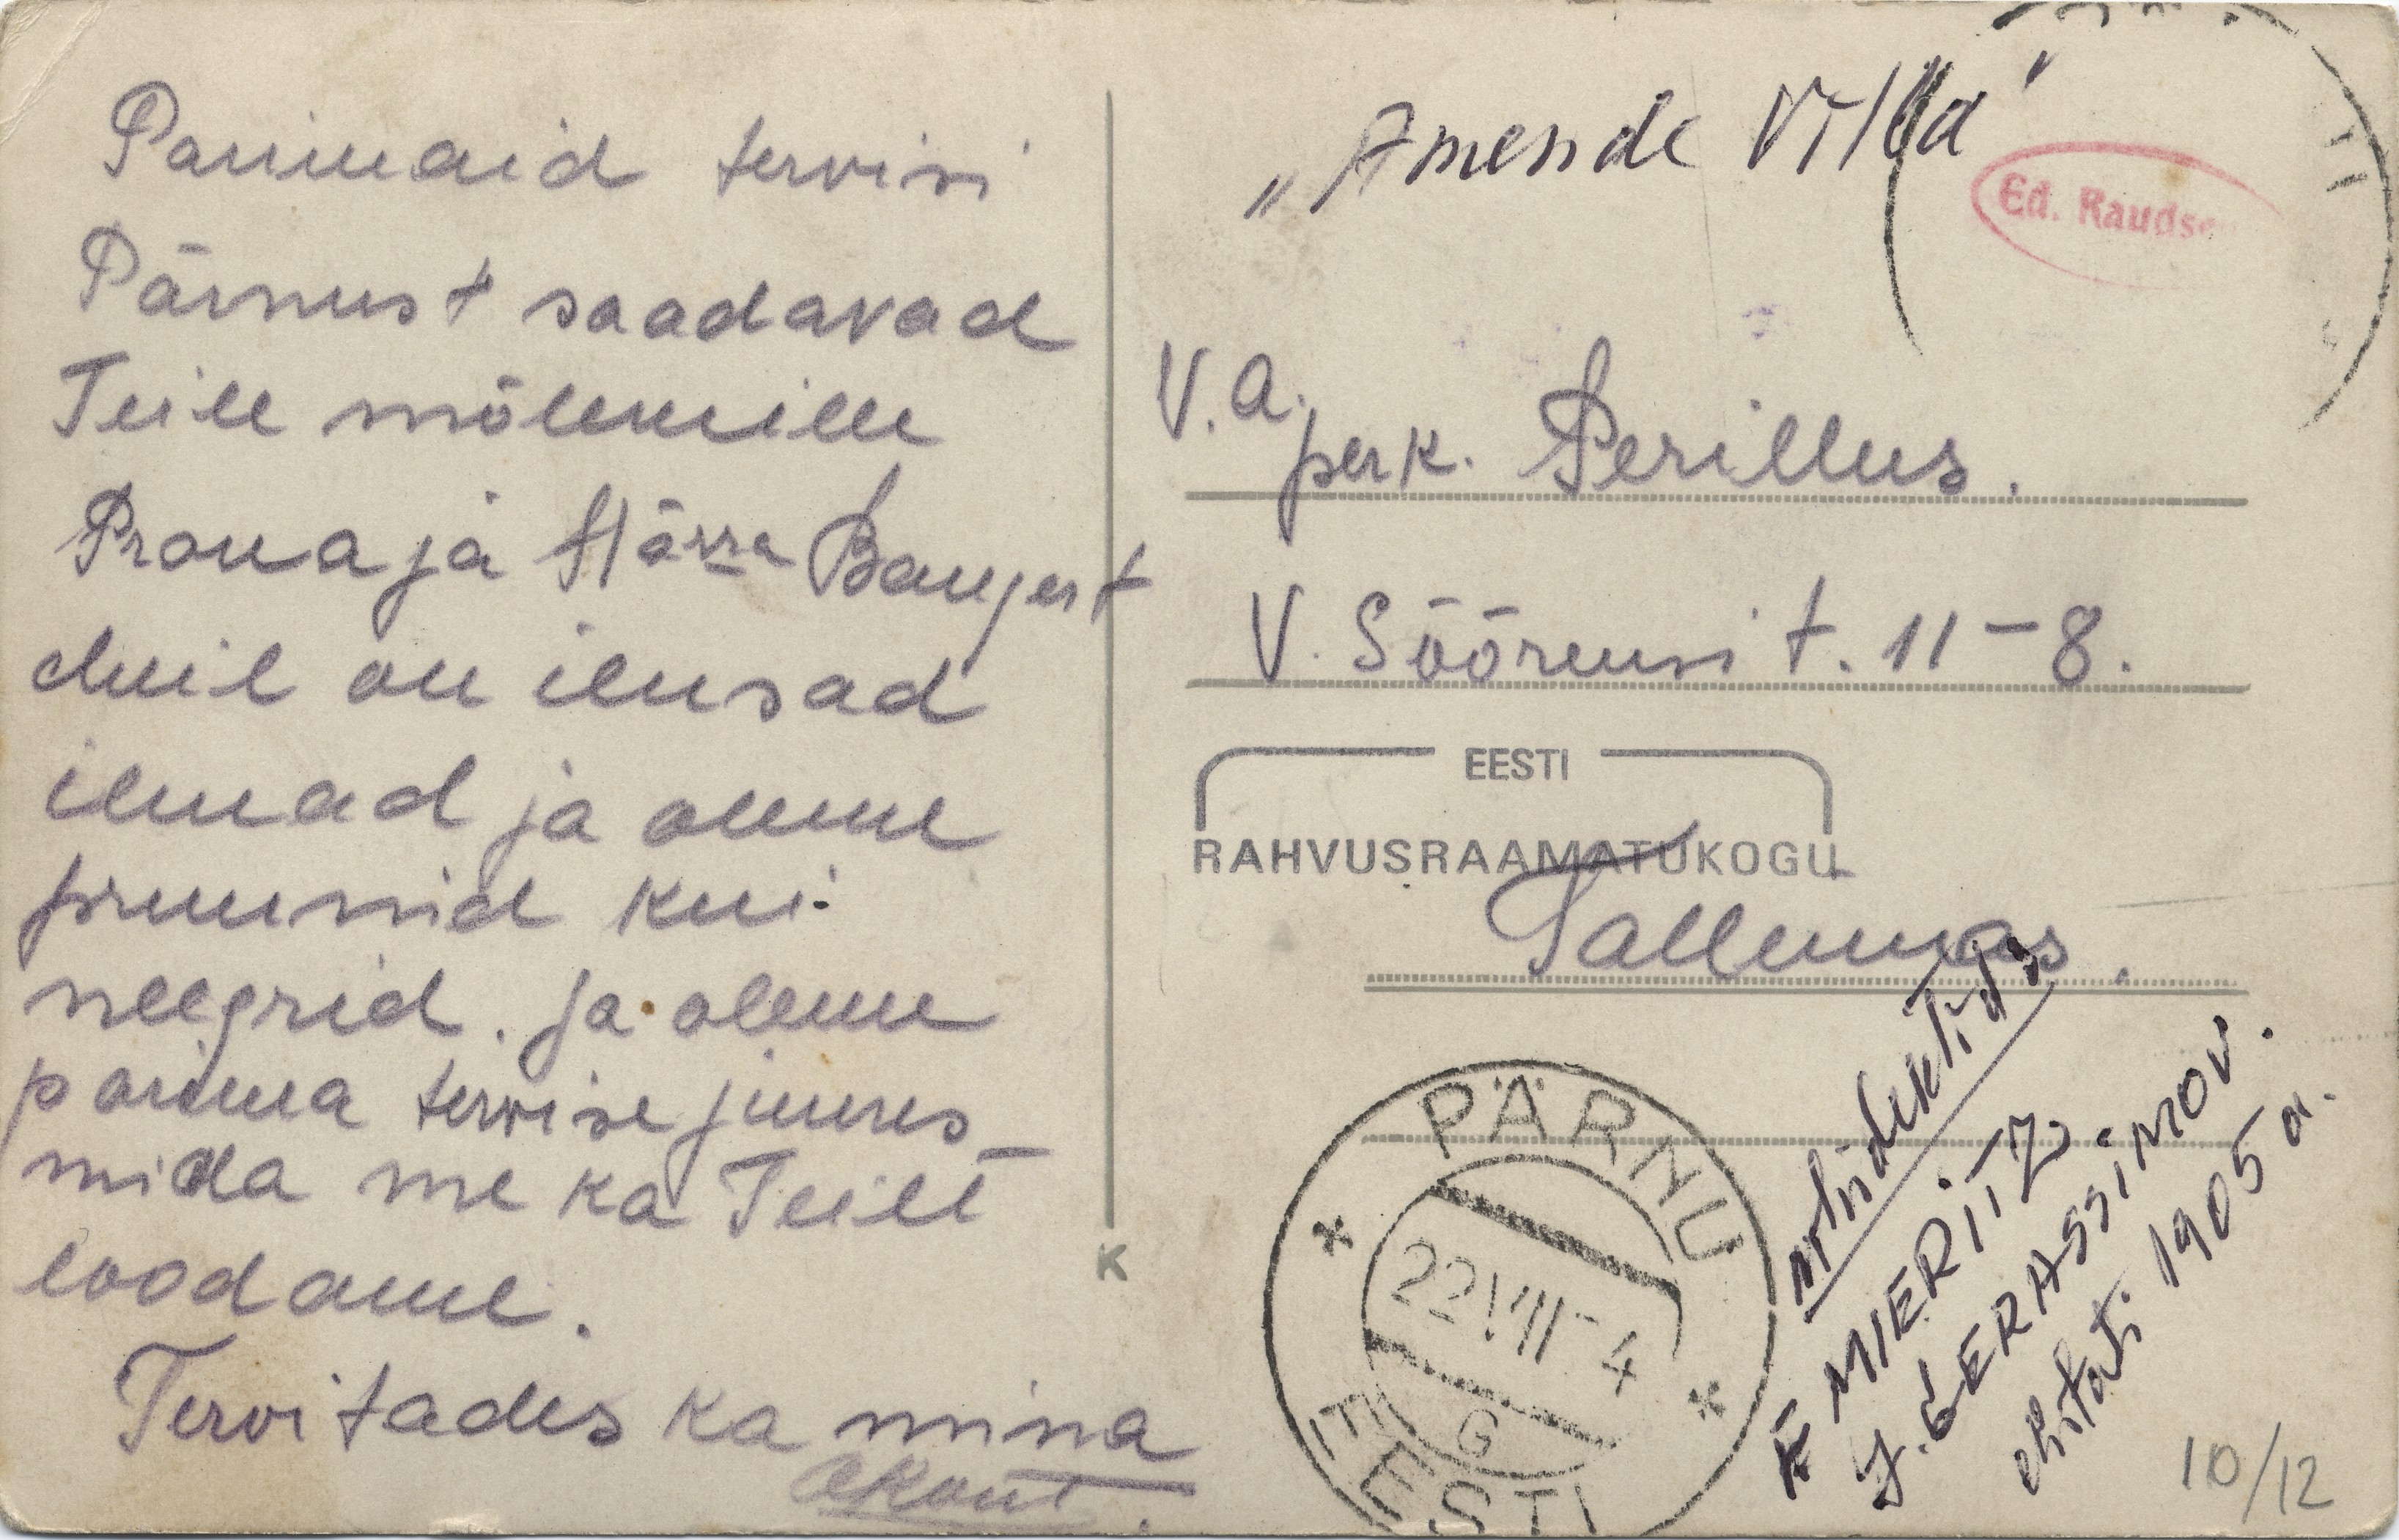 Parimaid tervisi
Pärnust saadavad
Teile mõlemille
Proua ja Härra Baugert
meil on ilusad
ilmad ja oleme
pruunid kui
neegrid. ja oleme
parima tervise juures
mida me ka Teilt
loodame.
Tervitades ka mina
"Amende Villa"
Ed. Raudse
V. A.
perk. Perillus.
V. Sõõrensi t. 11-8.
EESTI
RAHVUSRAAMATUKOGU
Tallinnas.
K
PÄRNU
22 VII - 4
G
EESTI
arhidektid:
F. MIERITZ
J. GERASSIMOV.
ehitati 1905 a.
10/12